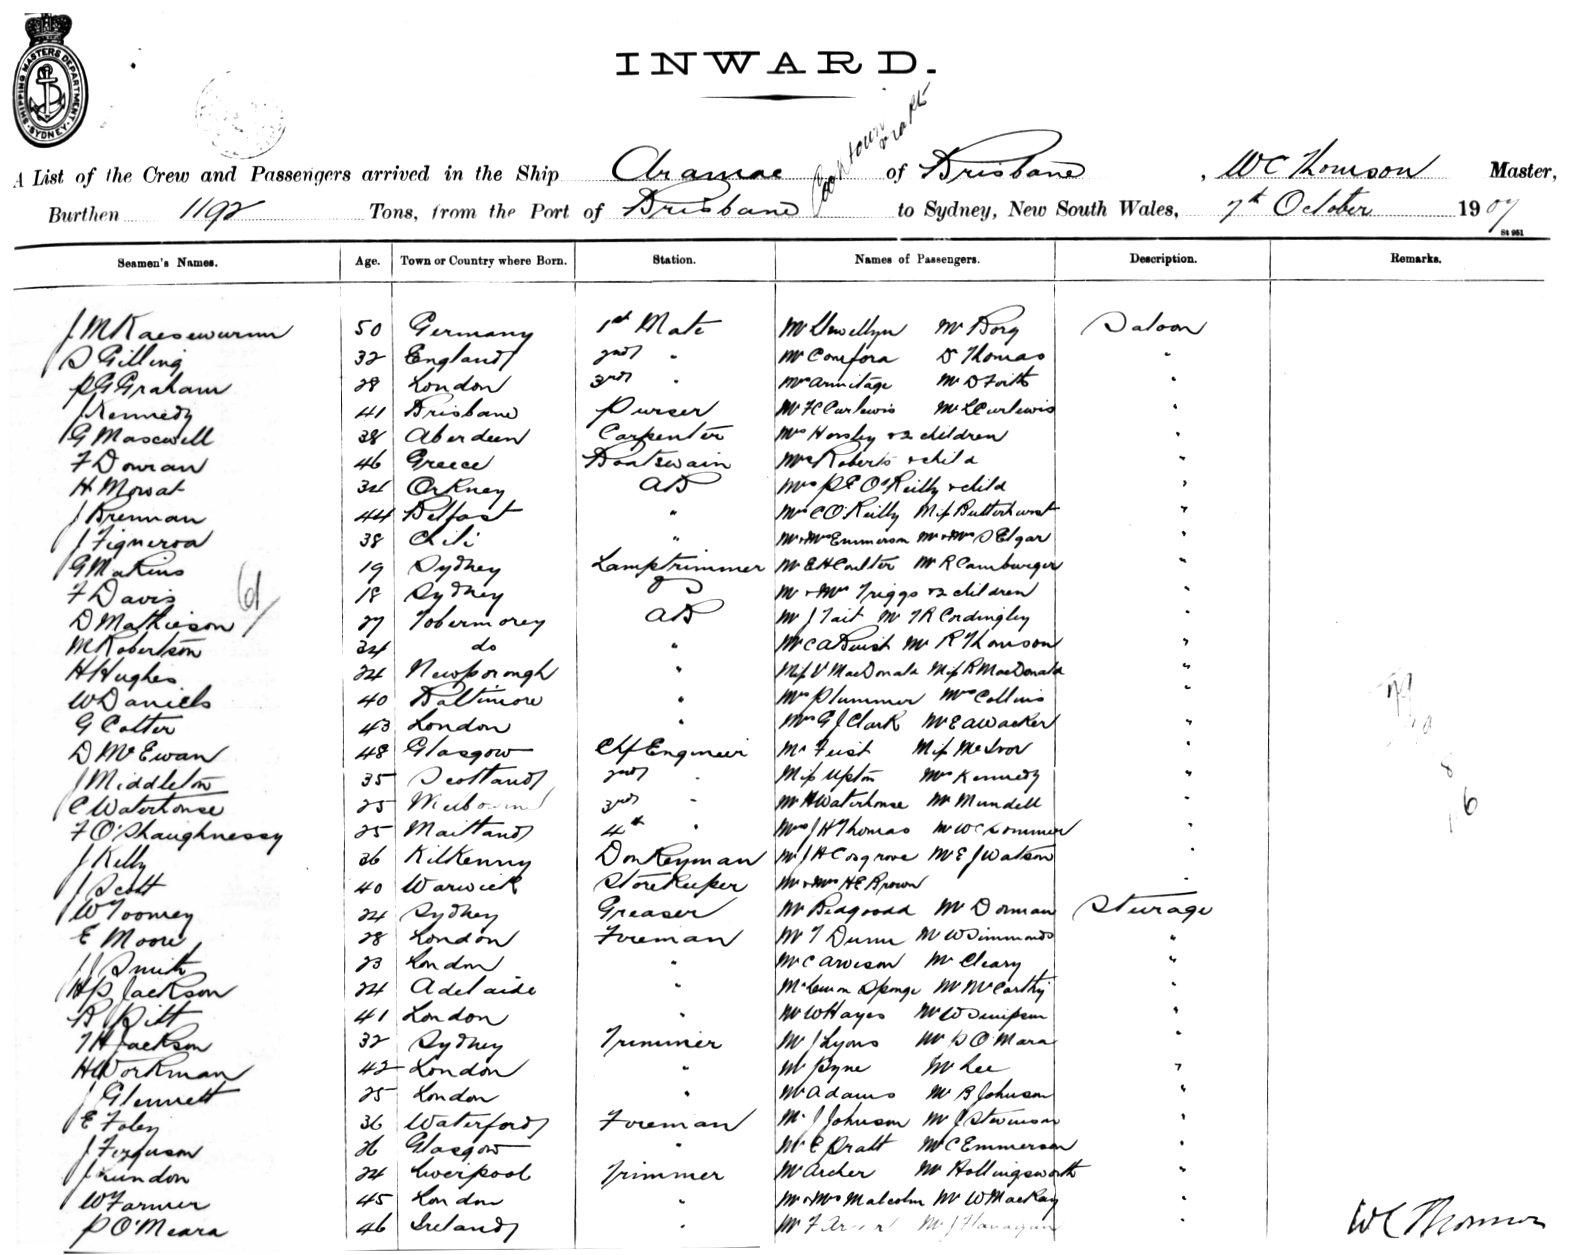 SHIPPING MASTERS DEPARTMENT
SYDNEY
INWARD.
Cooktown
A List of the Crew and Passengers arrived in the Ship Aramac of Brisbane, WC Thomson Master,
Burthen 1192 Tons, from the Port of Brisbane to Sydney, New South Wales, 7th October 1907
St 951
Seamen's Names. Age. Town or Country where Born. Station. Names of Passengers. Description. Remarks.
J M Kaesewurm 50 Germany 1st Mate Mr Llewellyn Mr Borg Saloon
S Gilling 32 England 2nd " Mr Comfora D Thomas "
P G Graham 28 London 3rd " Mrs Armitage Mr D Forth "
J Kennedy 41 Brisbane Purser Mr F C Curlewis Mr L Curlewis "
G Maxwell 38 Aberdeen Carpenter Mrs Horsley & 2 children "
F Donran 46 Greece Boatswain Mrs Roberts & child "
H Mowat 34 Orkney AB Mrs P E O'Reilly & child "
J Brennan 44 Belfast " Mrs C O'Reilly Miss Butterhurst "
J Figneroa 38 Chili " Mr & Mrs Emmerson Mr & Mrs S Elgar "
G Makins 19 Sydney Lamptrimmer Mr E H Coulter Mr R Camburger "
F Davis 18 Sydney Mr & Mrs Triggs & 2 children "
D Mathieson 27 Tobermorey AB Mr J Tait Mr T R Cordingley "
M Robertson 34 do " Mr C A Buist Mr R Thomson "
H Hughes 24 Newborough " Miss V MacDonald Miss R MacDonald "
W Daniels 40 Baltimore " Mrs Plummer Mrs Collins "
G Cotter 43 London " Mrs G J Clark Mr E A Wacker "
D McEwan 48 Glasgow Chf Engineer Mr Feist Miss McIvor "
J Middleton 35 Scotland 2nd " Miss Upton Mrs Kennedy "
C Waterhouse 25 3rd " Mr H Waterhouse Mr Mundell "
F O'Shaughnessy 25 Maitland 4th " Mrs J H Thomas Mr W C Sommer "
J Kelly 36 Kilkenny Donkeyman Mr J H Cosgrove Mr E J Watson "
J Scott 40 Warwick Storekeeper Mr & Mrs H E Brown "
W Toomey 24 Sydney Greaser Mr Bidgoodd Mr Dorman Sturage
E Moore 28 London Foreman Mr T Dunn Mr W Simmonds "
J Smith 23 London " Mr C Arvison Mr Cleary "
H P Jackson 24 Adelaide " Mr Lemon Sponge Mr McCarthy "
R Pitt 41 London " Mr W Hayes Mr W Simpson "
T H Jackson 32 Sydney Trimmer Mr J Lyons Mr D O'Mara "
H Workman 42 London " Mr Pyne Mr Lee "
J Glennett 25 London " Mr Adams Mr B Johnson "
E Foley 36 Waterford Foreman Mr J Johnson Mr J Stevenson "
J Ferguson 26 Glasgow " Mr E Pratt Mr C Emmerson "
J Lundon 24 Liverpool Trimmer Mr Archer Mr Hollingsworth "
W Farmer 45 London " Mr & Mrs Malcolm Mr W Mackay "
P O'Meara 46 Ireland " Mr F Mr J Flanagan "
WC Thomson